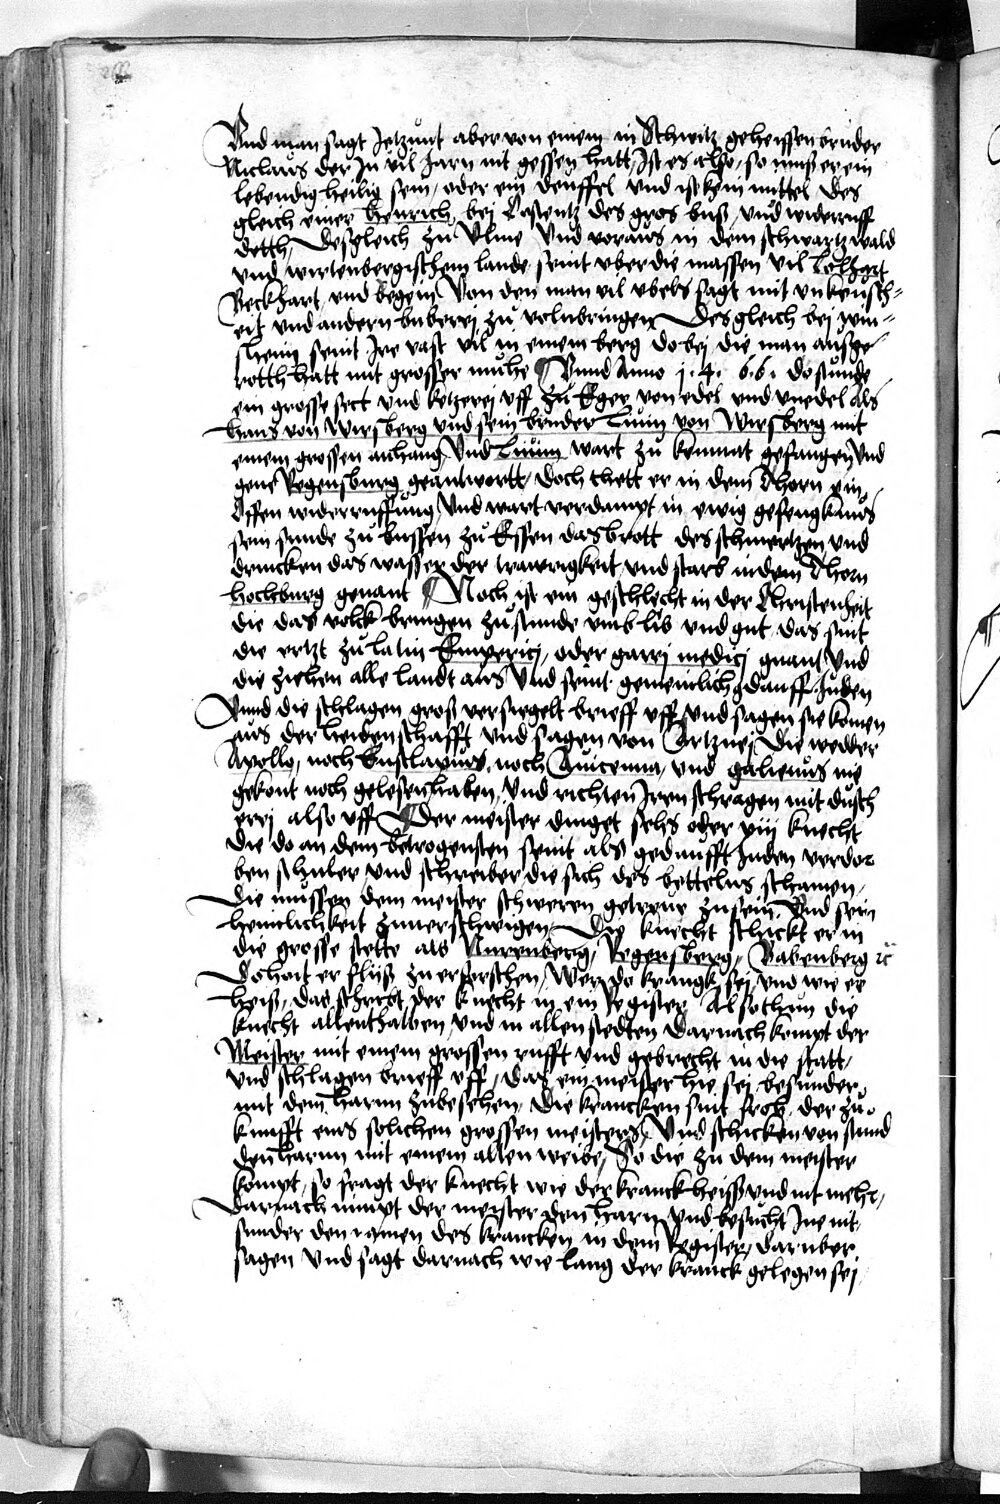 Vnd man sagt Jetzunt aber von einem in Schwitz geheissen bruder
Niclaus der Jn vil Jarn nit gessen hatt, Jst es also, so muß er ein
lebendig heilig sein, oder ein deuffel vnd ist kein mittel Des
gleich einer Henrich, bei Costentz des gros buß, vnd widerruff
dett, Desgleich zu Vlme Vnd voraus in dem schwartzwald
vnd wirtenbergischem lande seint vber die massen vil Lolhart
Beckhart, vnd begein Von den man vil vbels sagt mit vnkeusch-
eit vnd andern buberei zu volnbringen Desgleich bei win-
sheim seint Jre vast vil in einem berg do bei die man ausge
rott hatt mit grosser muhe Vnnd Anno 1.4.6.6. do stunde
ein grosse sect vnd ketzerei vff zu Eger von edel vnd vnedel als
Hans von Wirsberg vnd sein bruder Liuin von Wirsberg mit
einem grossen anhang Vnd Liuin wart zu kemnat gefangen Vnd
gene Regensburg geantwortt, doch thett er in dem Thorn ein
Offen widerruffung, Vnd wart verdampt in ewig gefengknus
sein sunde zu bussen zu Essen das brott des schmertzen vnd
drincken das wasser der trawrigkeit vnd starb in dem Thorn
Hochburg genant Noch ist ein geschlecht in der Christenheit
die das volck bringen zu stunde vmb lib vnd gut, das sint
die ertzt zu latin Emperici, oder garri medici gnant Vnd
die ziehen alle landt aus Vnd seint gemeinlich gdaufft Juden
Vnnd die schlagen groß versiegelt brieff vff Vnd sagen sie komen
aus der heidenschafft vnd sagen von Artznei Die wedder
Apollo, noch Esculapius, noch Auicenna, vnd galienus nie
gekont noch gelesen haben, Vnd richten Jren schragen mit dusch
erei also vff Der meister dinget sechs oder xiij knecht
die do an dem betrogensten seint als gedaufft Juden verdor
ben schuler vnd schreiber die sich des bettelns schamen,
Die mussen dem meister schweren getreue zu sein, Vnd sein
heimlichkeit zuuerschwigen Die knecht schickt er in
die grosse stette als Nurenberg, Regensberg, Babenberg ꝛc
Do hort er fliß zu erforschen, Wer do kranck sei, vnd wie er
heiß, das schribt der knecht in ein Register Also thun die
knecht allenthalben vnd in allen stedten Darnach kompt der
Meister mit einem grossen rufft vnd gebrecht in die statt,
vnd schlagen brieff vff, das ein meister hie sei besunder
mit dem harnn zubesehen, Die krancken sint froh der zu
kunfft eins solichen grossen meisters, Vnd schicken von stund
den harnn mit einem alten weibe, So die zu dem meister
kompt, so fragt der knecht wie der kranck heiß vnd nit mehr,
Darnach nimpt der meister den harn vnd besucht Jne nit,
sunder den namen des krancken in dem Register, daruber
sagen Vnd sagt darnach wie lang der kranck gelegen sei